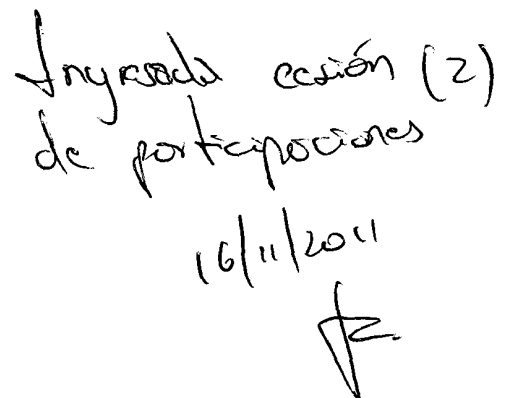 Ingresada cesión (2)
de participaciones
16/11/2011